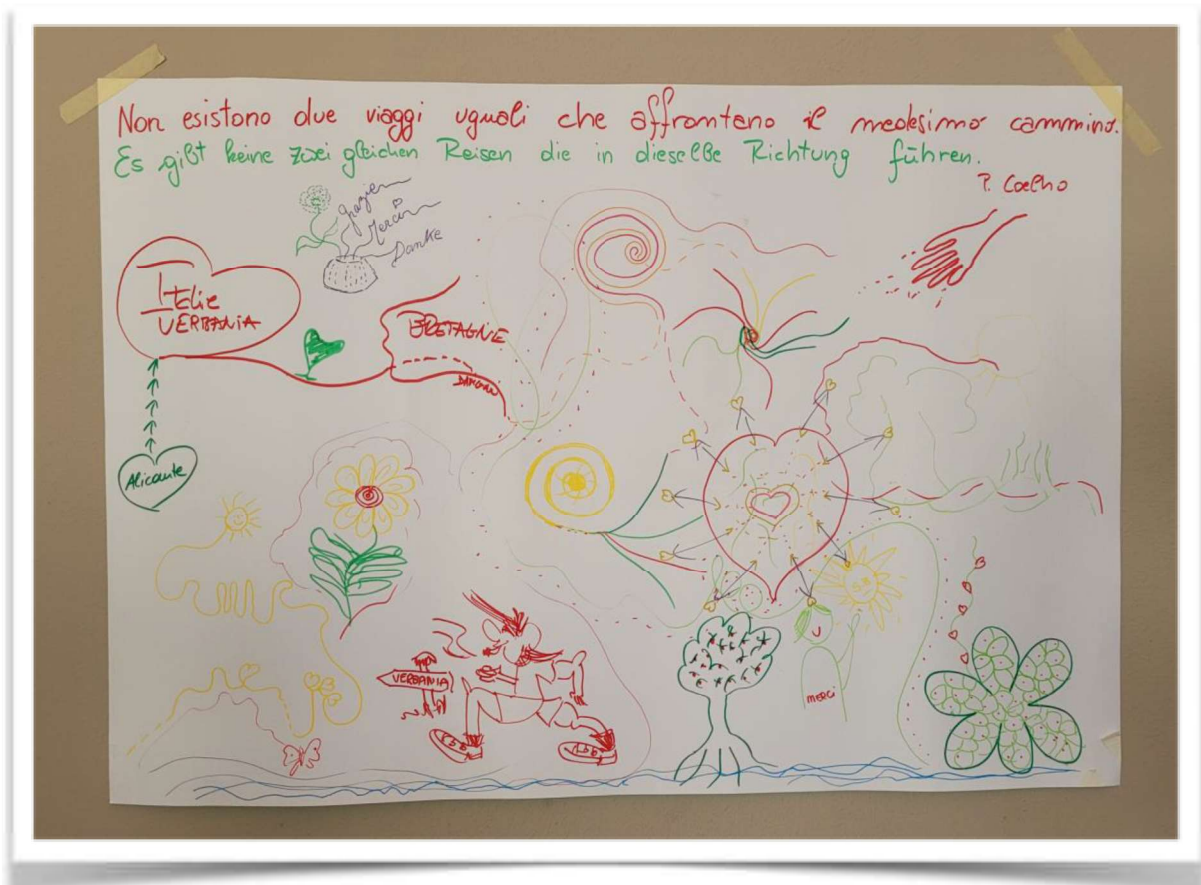 Non esistono due viaggi uguali che affrontano il medesimo cammino.
Es gibt keine zwei gleichen Reisen die in dieselbe Richtung führen.
P. Coelho
Grazie
Merci
Danke
Italie
VERBANIA
BRETAGNE
Alicante
VERBANIA
MERCI